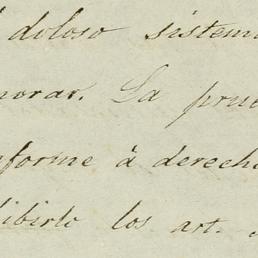 doloso sistem
norar. La prue
nforme à derecho
libirlo los art.